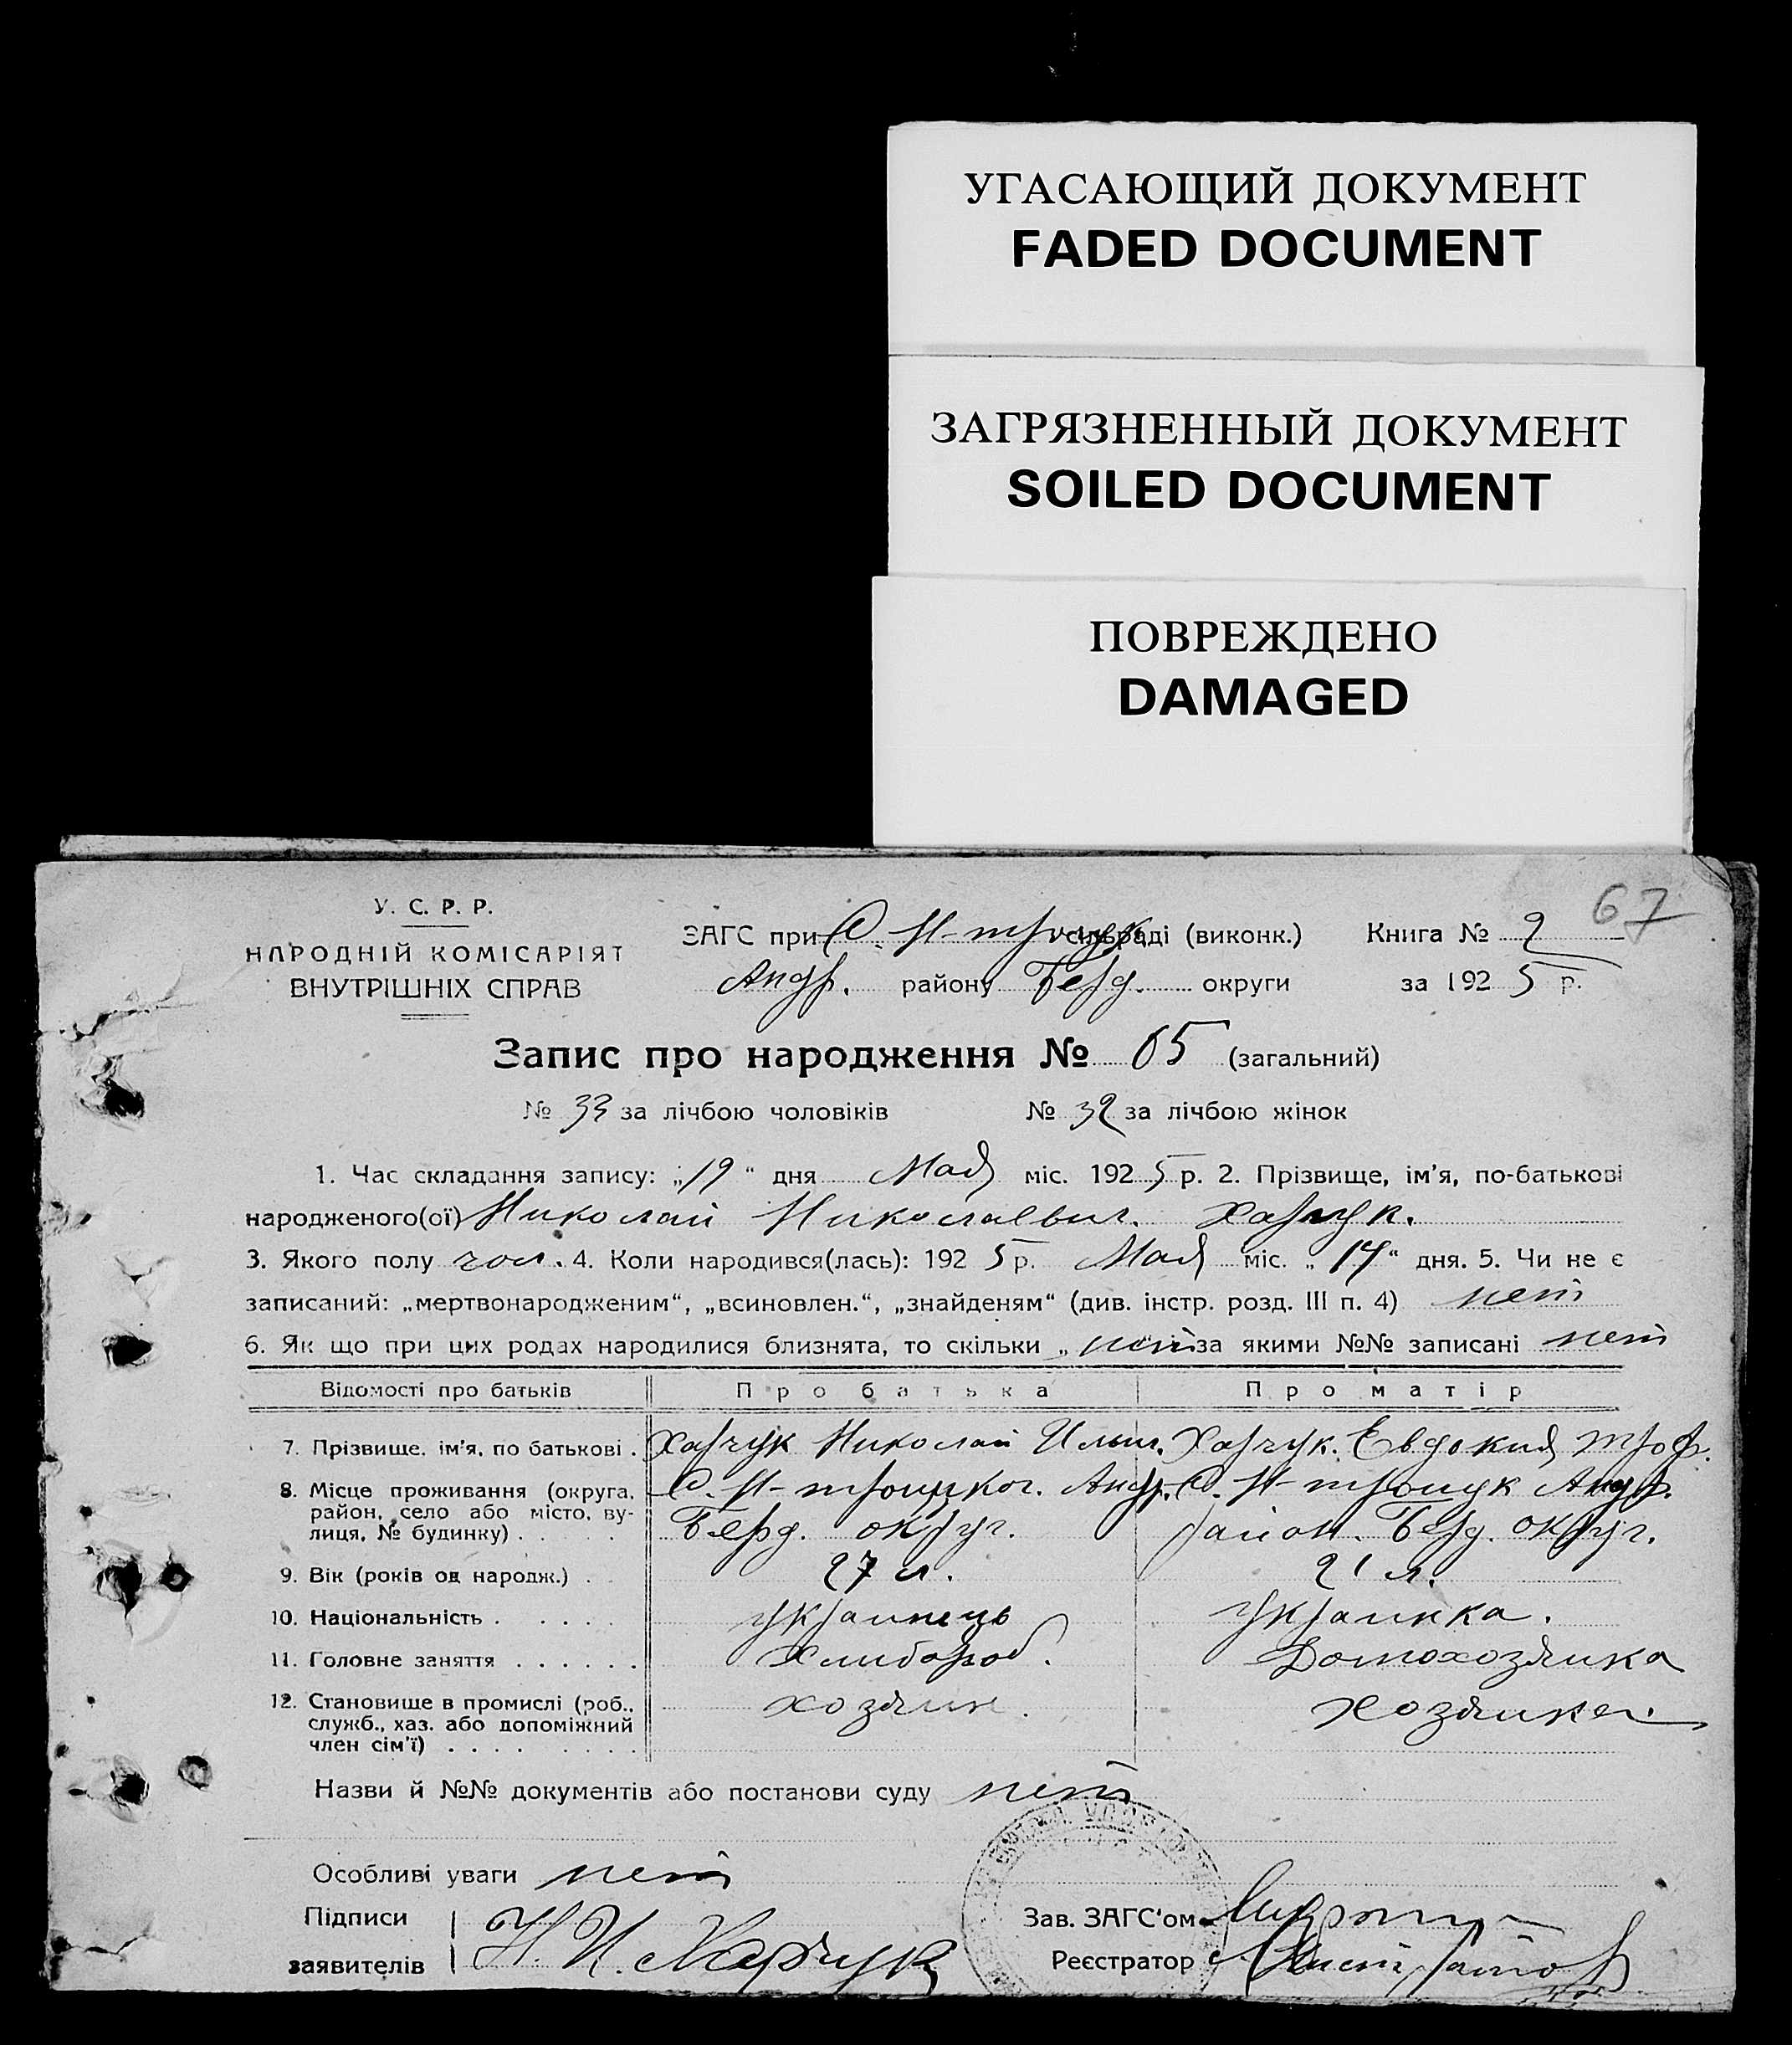 УГАСАЮЩИЙ ДОКУМЕНТ
FADED DOCUMENT
ЗАГРЯЗНЕННЫЙ ДОКУМЕНТ
SOILED DOCUMENT
ПОВРЕЖДЕНО
DAMAGED
67
У. С. Р. Р.
НАРОДНІЙ КОМІСАРІЯТ
ВНУТРІШНІХ СПРАВ
ЗАГС при С. Н-троицк сільраді (виконк.) Книга № 2
Андр. району Берд. округи за 1925 р.
Запис про народження № 65 (загальний)
№ 33 за лічбою чоловіків № 32 за лічбою жінок
1. Час складання запису: „19“ дня Мая міс. 1925 р. 2. Прізвище, ім'я, по-батькові
народженого(ої) Николай Николаевич. Харчук.
3. Якого полу чол. 4. Коли народився(лась): 1925 р. Мая міс. „14“ дня. 5. Чи не є
записаний: „мертвонародженим“, „всиновлен.“, „знайденям“ (див. інстр. розд. III п. 4) нет
6. Як що при цих родах народилися близнята, то скільки „ нет за якими №№ записані нет
Відомості про батьків Про батька Про матір
7. Прізвище, ім'я, по батькові . Харчук Николай Ильич. Харчук. Евдокия Троф.
8. Місце проживання (округа, С. Н-троицког. Андр. С. Н-троицк Андр.
район, село або місто, ву-
лиця, № будинку) . Берд. округ. район. Берд. округ.
9. Вік (років од народж.) . 27 л. 21 л.
10. Національність . украинець украинка.
11. Головне заняття . . . . . . Хлибороб. Домохозяика
12. Становище в промислі (роб., хозяин. хозяика.
служб., хаз. або допоміжний
член сім'ї) . . . .
Назви й №№ документів або постанови суду нет
Особливі уваги нет
Підписи
заявителів Н. И. Харчук
Зав. ЗАГС'ом
Реєстратор